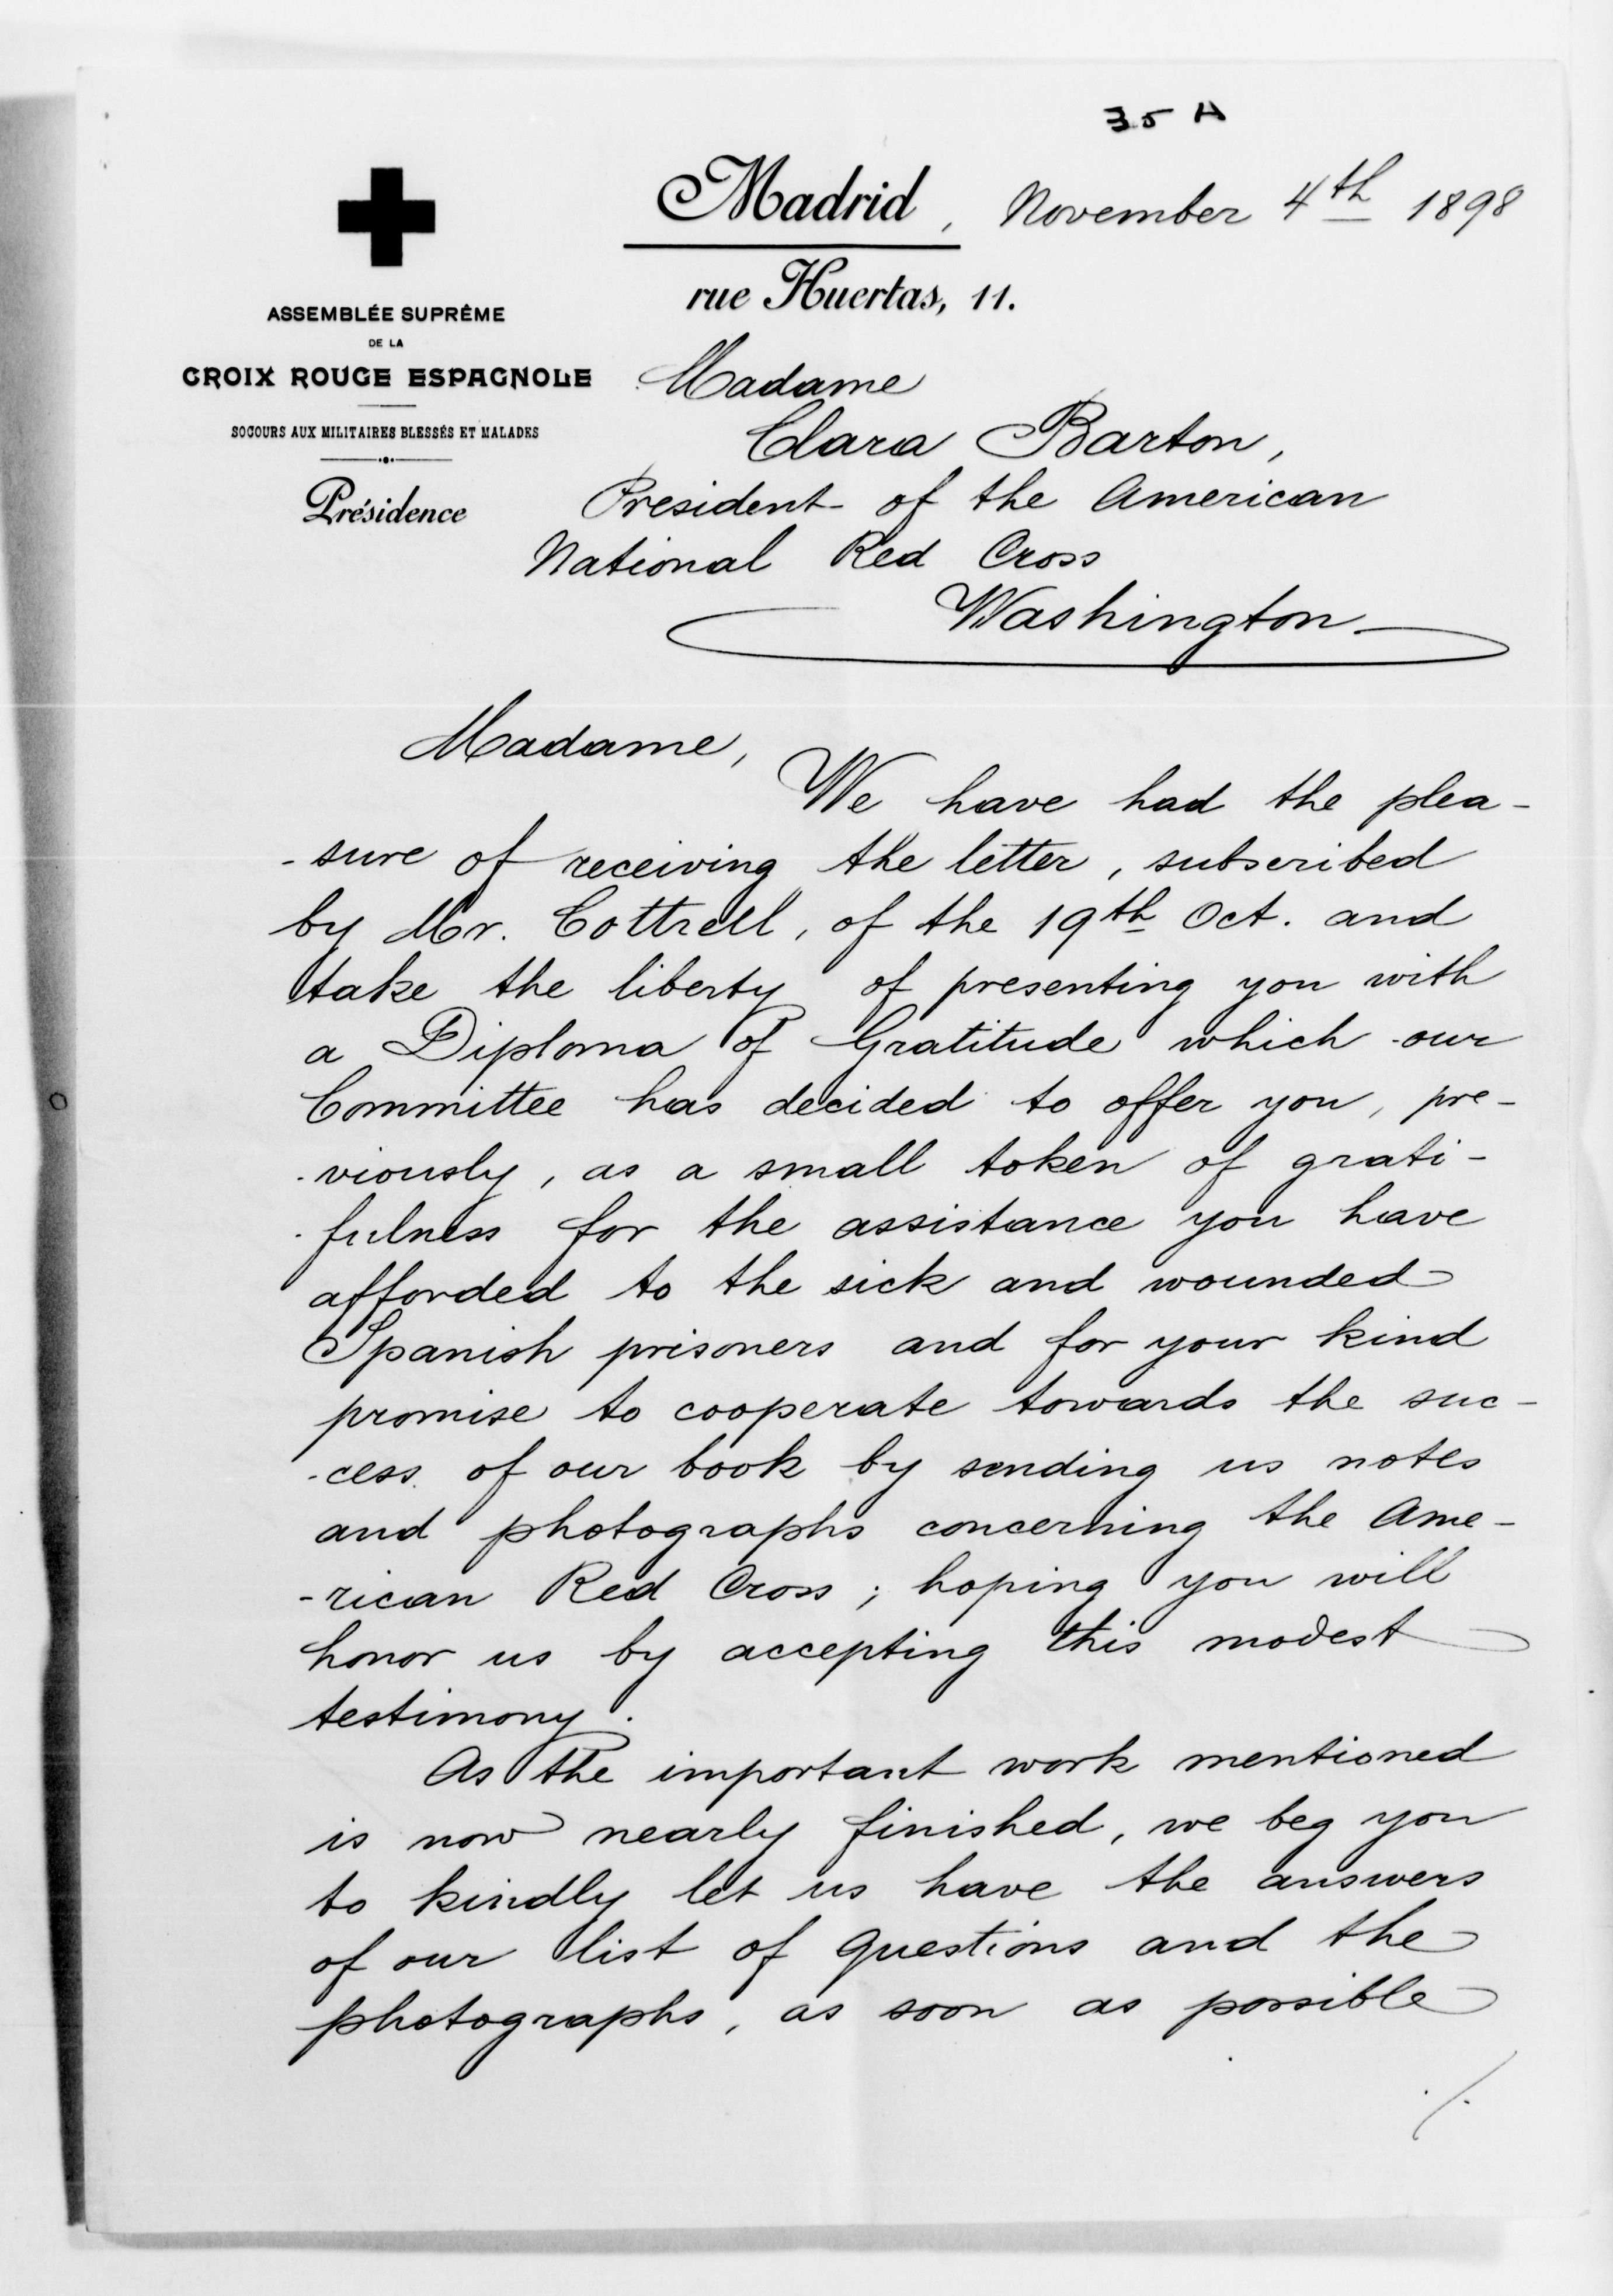 35 A
Madrid, November 4th 1898
rue Huertas, 11.
ASSEMBLÉE SUPRÊME
DE LA
CROIX ROUGE ESPAGNOLE
SOCOURS AUX MILITAIRES BLESSÉS ET MALADES
Présidence
Madame
Clara Barton,
President of the American
National Red Cross
Washington
Madame,
We have had the plea-
-sure of receiving the letter, subscribed
by Mr. Cottrell, of the 19th Oct. and
take the liberty of presenting you with
a Diploma of Gratitude which our
Committee has decided to offer you, pre-
-viously, as a small token of grati-
-fulness for the assistance you have
afforded to the sick and wounded
Spanish prisoners and for your kind
promise to cooperate towards the suc-
-cess of our book by sending us notes
and photographs concerning the Ame-
-rican Red Cross; hoping you will
honor us by accepting this modest
testimony.
As the important work mentioned
is now nearly finished, we beg you
to kindly let us have the answers
of our list of questions and the
photographs, as soon as possible
./.